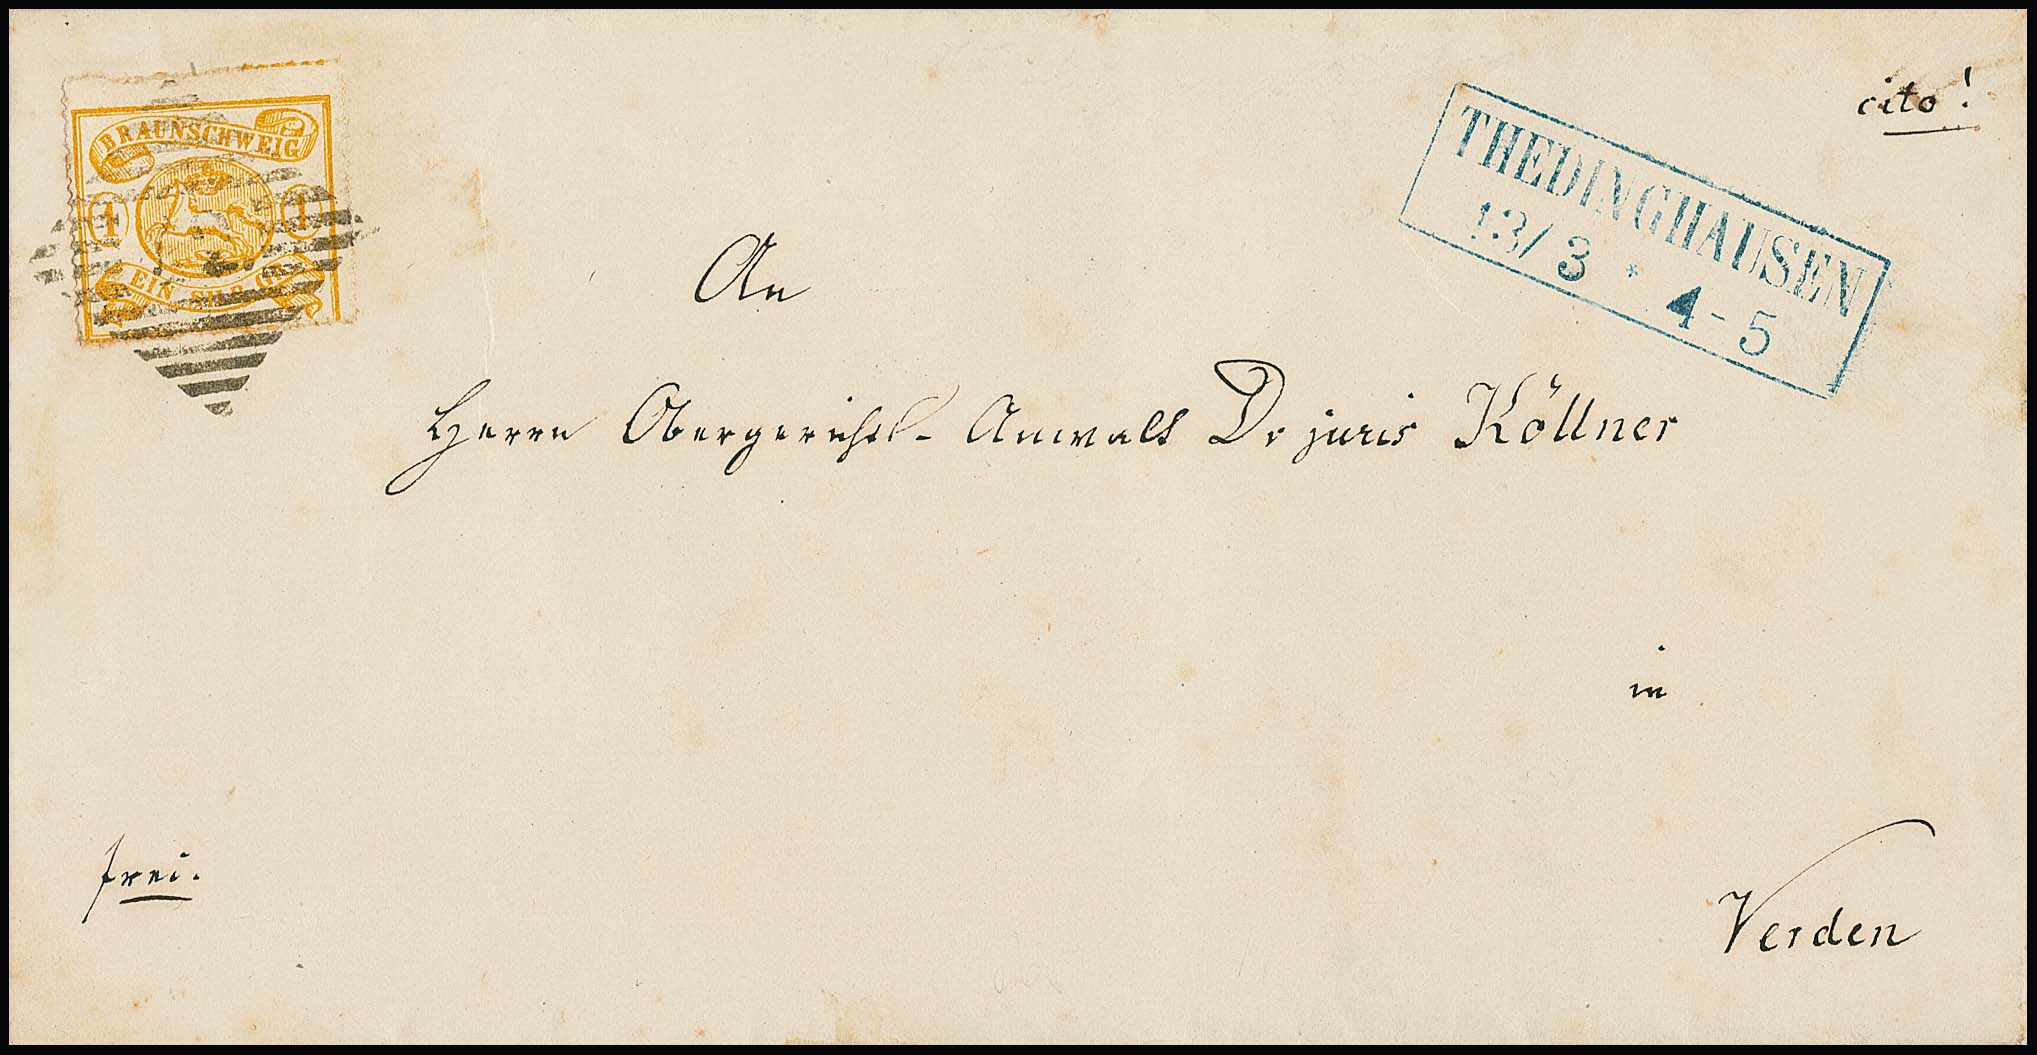 BRAUNSCHWEIG
1 1
EIN SILB. GR.
THEDINGHAUSEN
13/3 * 4-5
cito!
An
Herrn Obergerichts-Anwalt Dr juris Köllner
in
Verden
frei.